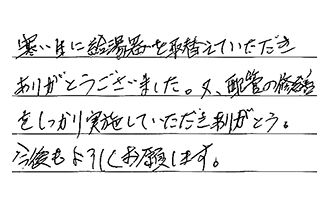 寒い日に給湯器を取替えていただき
ありがとうございました。又、配管の修繕
をしっかり実施していただきありがとう。
今後もよろしくお願します。